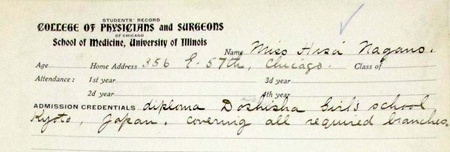 STUDENTS' RECORD
COLLEGE OF PHYSICIANS AND SURGEONS
OF CHICAGO
School of Medicine, University of Illinois
Name Miss Aisá Nagano.
Age Home Address 356 E. 57th, Chicago. Class of
Attendance: 1st year 3d year
2d year 4th year
ADMISSION CREDENTIALS diploma Doshisha Girl's school
Kyoto, Japan. covering all required branches